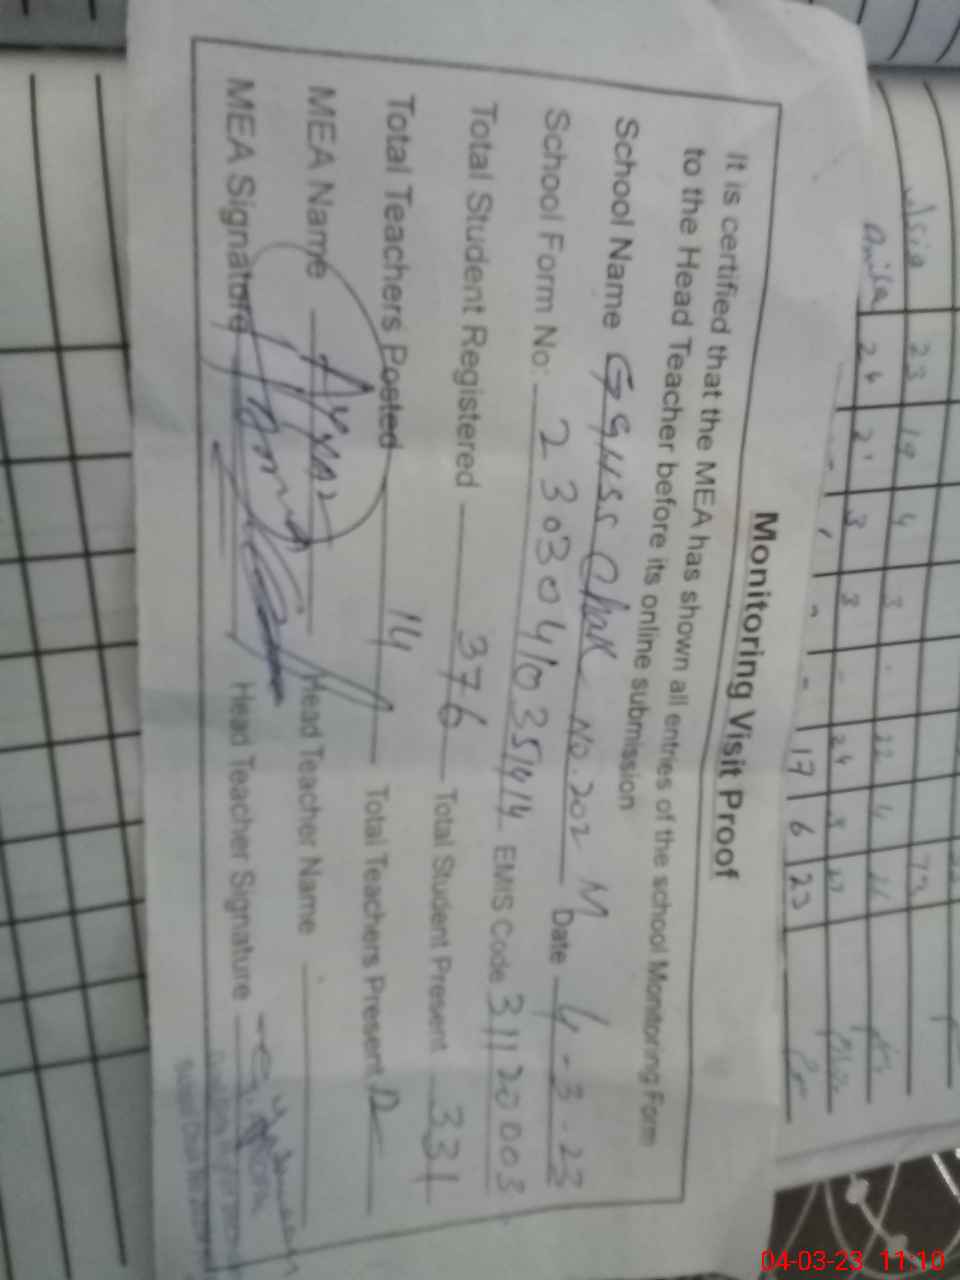 Monitoring Visit Proof
It is certified that the MEA has shown all entries of the school Monitoring Form
to the Head Teacher before its online submission
School Name GGHSS Chak No. 202 M Date 4-3-23
School Form No: 23030410351414 EMIS Code 31120003
Total Student Registered 376 Total Student Present 331
Total Teachers Posted 14 Total Teachers Present 12
MEA Name Head Teacher Name
MEA Signature Head Teacher Signature
Asia 23 19 4 3
Anila 24 21 3 3 - 24 3 27
17 6 23
04-03-23 11:10